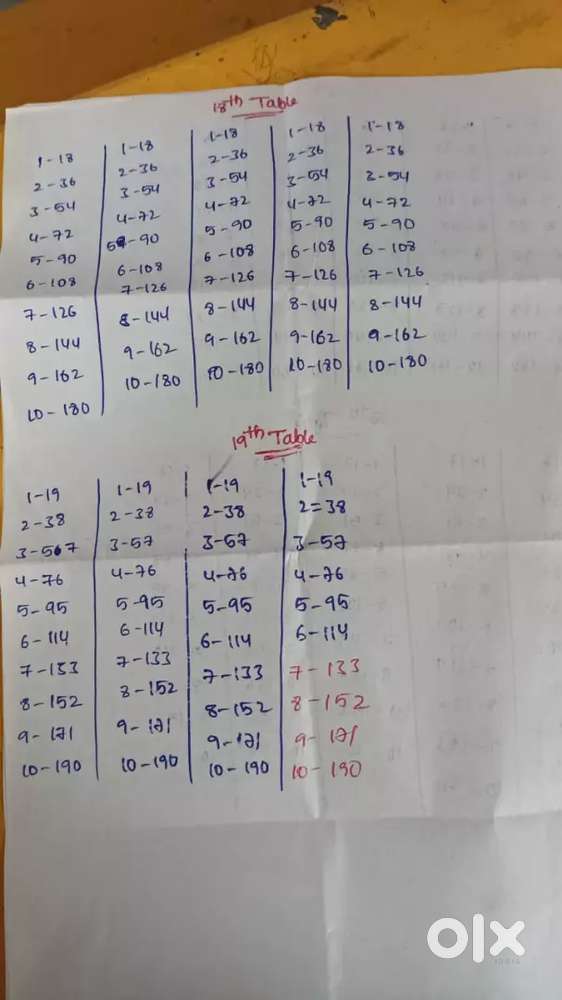 18th Table
1-18
2-36
3-54
4-72
5-90
6-108
7-126
8-144
9-162
10-180
1-18
2-36
3-54
4-72
5-90
6-108
7-126
8-144
9-162
10-180
1-18
2-36
3-54
4-72
5-90
6-108
7-126
8-144
9-162
10-180
1-18
2-36
3-54
4-72
5-90
6-108
7-126
8-144
9-162
10-180
1-18
2-36
3-54
4-72
5-90
6-108
7-126
8-144
9-162
10-180
19th Table
1-19
2-38
3-57
4-76
5-95
6-114
7-133
8-152
9-171
10-190
1-19
2-38
3-57
4-76
5-95
6-114
7-133
8-152
9-171
10-190
1-19
2-38
3-57
4-76
5-95
6-114
7-133
8-152
9-171
10-190
1-19
2=38
3-57
4-76
5-95
6-114
7-133
8-152
9-171
10-190
olx
INDIA